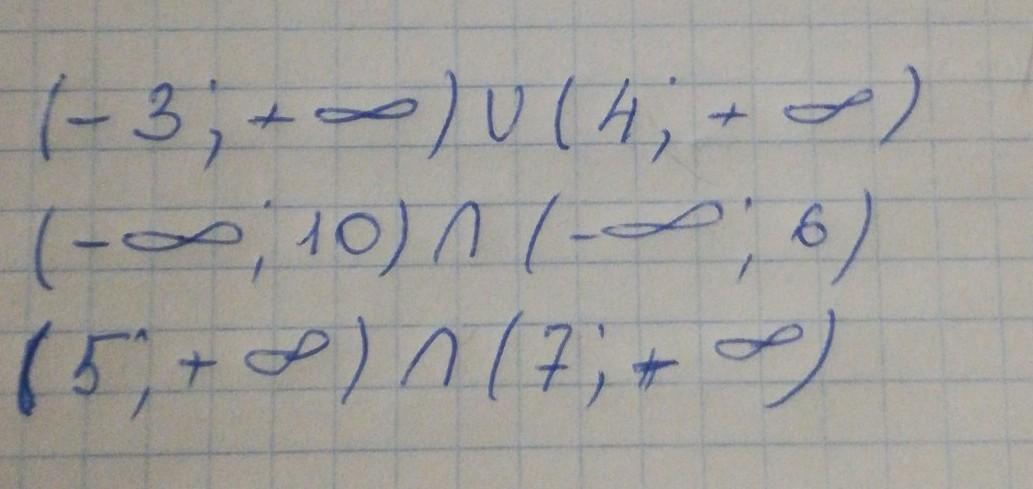 (-3; +∞) ∪ (4; +∞)
(-∞; 10) ∩ (-∞; 6)
(5; +∞) ∩ (7; +∞)